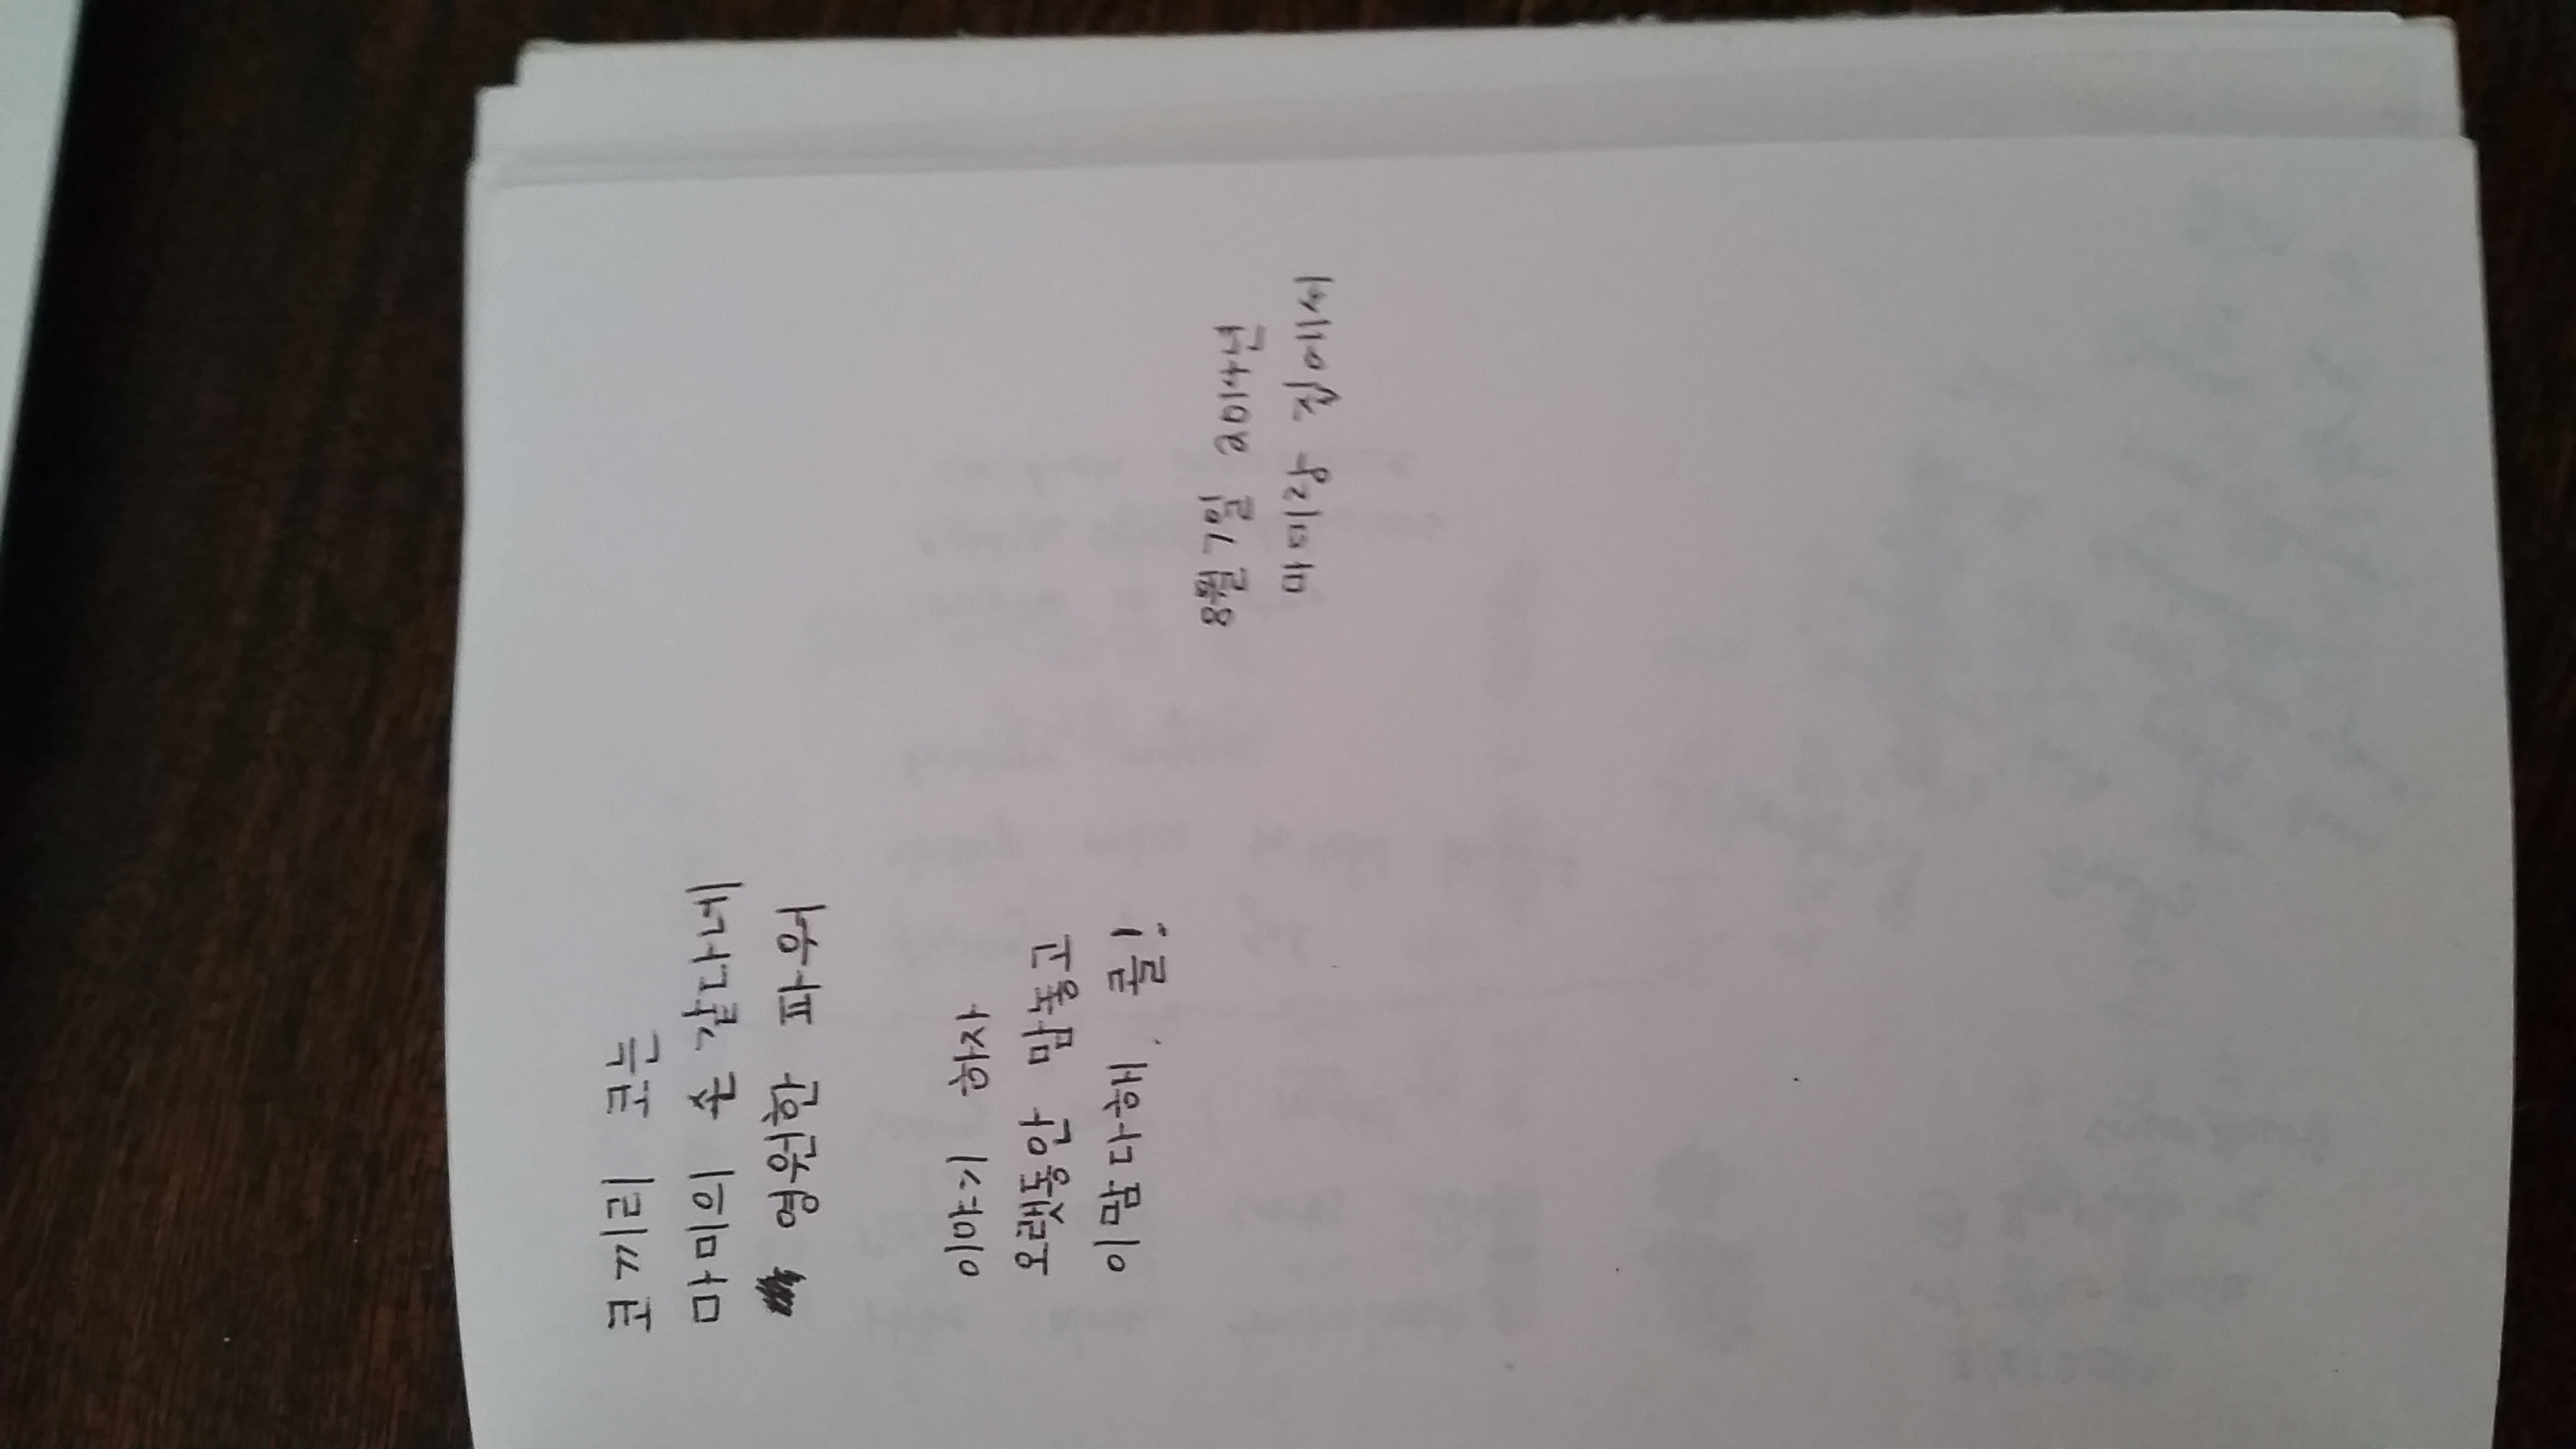 코끼리 코는
마미의 손 같다네
영원한 파워
이야기 하자
오랫동안 맘놓고
이맘다해, 콜!
8월 7일 2014년
마미랑 집에서